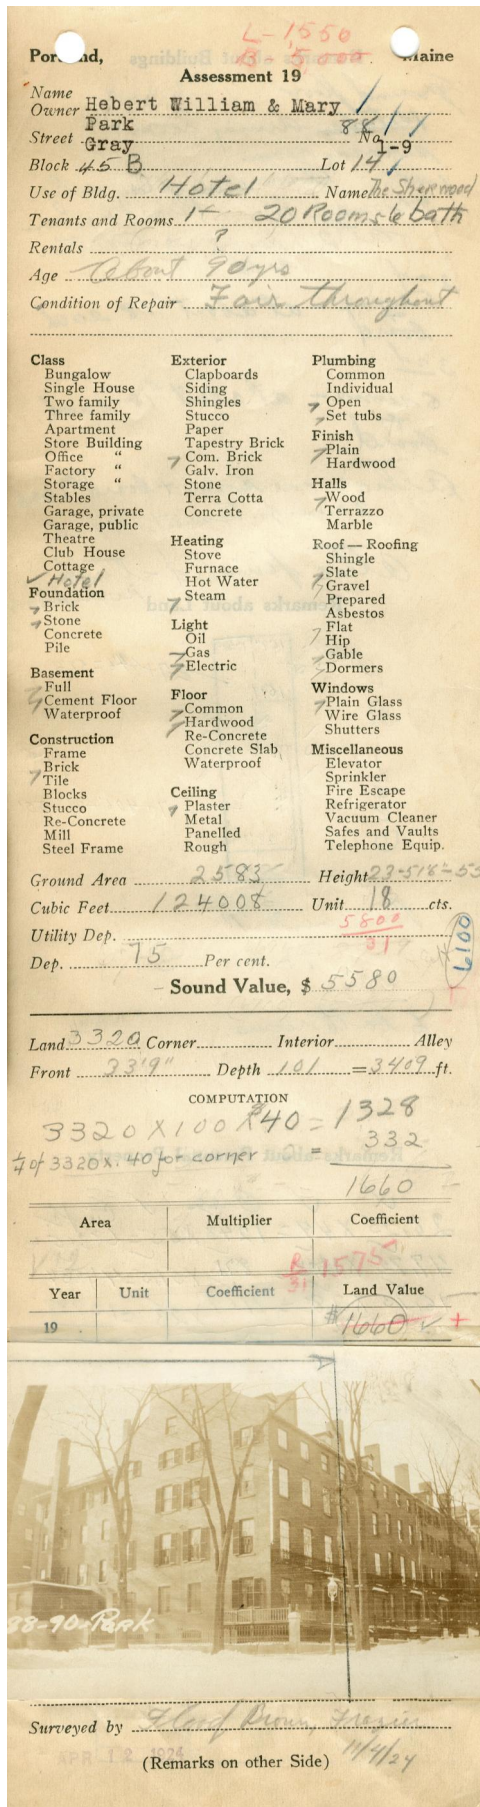 L-1550
B-5000
Portland, Maine
Assessment 19
Name
Owner Hebert William & Mary
Park
Street Gray No. 88
1-9
Block 45 B Lot 14
Use of Bldg. Hotel Name The Sherwood
Tenants and Rooms 1- 20 Rooms 6 bath
Rentals ?
Age About 90 yrs
Condition of Repair Fair throughout
Class
Bungalow
Single House
Two family
Three family
Apartment
Store Building
Office "
Factory "
Storage "
Stables
Garage, private
Garage, public
Theatre
Club House
Cottage
Hotel
Foundation
Brick
Stone
Concrete
Pile
Basement
Full
Cement Floor
Waterproof
Construction
Frame
Brick
Tile
Blocks
Stucco
Re-Concrete
Mill
Steel Frame
Exterior
Clapboards
Siding
Shingles
Stucco
Paper
Tapestry Brick
Com. Brick
Galv. Iron
Stone
Terra Cotta
Concrete
Heating
Stove
Furnace
Hot Water
Steam
Light
Oil
Gas
Electric
Floor
Common
Hardwood
Re-Concrete
Concrete Slab
Waterproof
Ceiling
Plaster
Metal
Panelled
Rough
Plumbing
Common
Individual
Open
Set tubs
Finish
Plain
Hardwood
Halls
Wood
Terrazzo
Marble
Roof — Roofing
Shingle
Slate
Gravel
Prepared
Asbestos
Flat
Hip
Gable
Dormers
Windows
Plain Glass
Wire Glass
Shutters
Miscellaneous
Elevator
Sprinkler
Fire Escape
Refrigerator
Vacuum Cleaner
Safes and Vaults
Telephone Equip.
Ground Area 2583 Height
Cubic Feet 124008 Unit 18 cts.
5800
31
Utility Dep.
6100
Dep. 75 Per cent.
Sound Value, $ 5580
Land 3320 Corner Interior Alley
Front 33'9" Depth 101 = 3409 ft.
COMPUTATION
3320 X 100 X $40 = 1328
1/4 of 3320 x .40 for corner = 332
1660
Area Multiplier Coefficient
B 1575
31
Year Unit Coefficient Land Value
19 $1660
88-90-Park
Surveyed by Brown, Frazier
APR 12 1924 11/4/24
(Remarks on other Side)